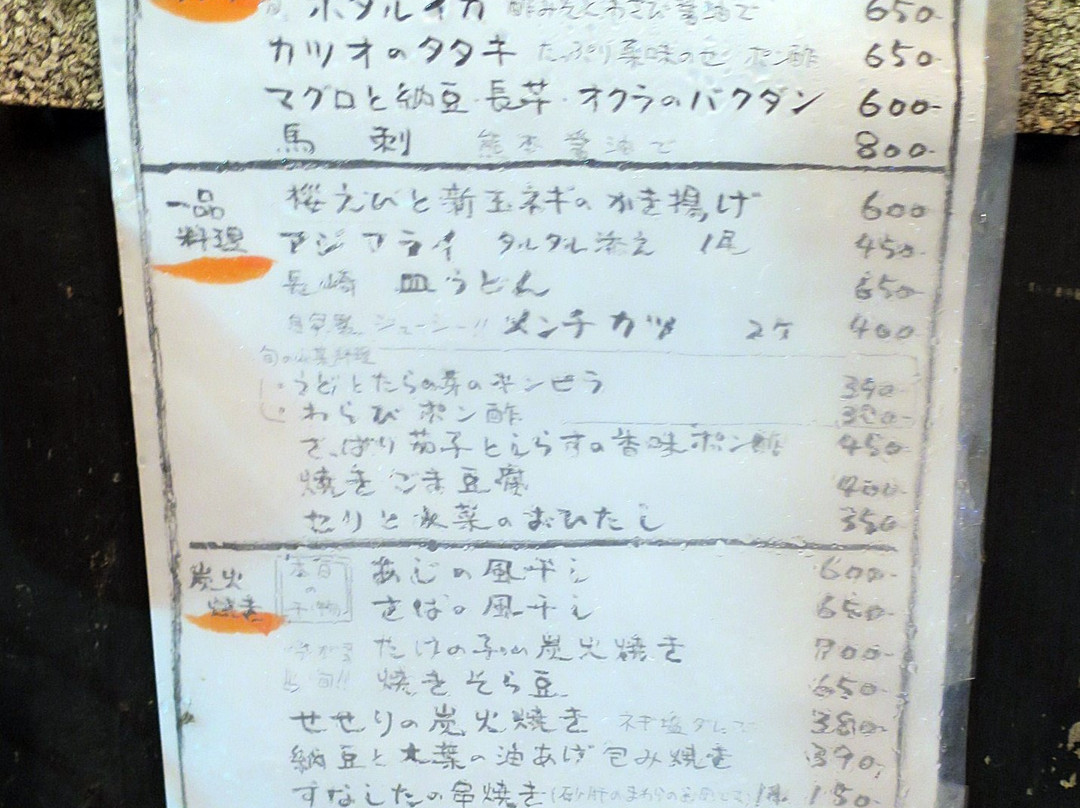 ホタルイカ 酢みそ わさび醤油で 650-
カツオのタタキ たっぷり薬味のせ ポン酢 650-
マグロと納豆・長芋・オクラのバクダン 600-
馬刺 熊本醤油で 800-
一品料理
桜えびと新玉ネギのかき揚げ 600
アジフライ タルタル添え 1尾 450-
長崎 皿うどん 650-
自家製 ジューシー!! メンチカツ 2ケ 400
旬の山菜料理
うどとたらの芽のキンピラ 390-
わらびポン酢
さっぱり茄子としらすの香味ポン酢 450
焼きごま豆腐 400-
セリと水菜のおひたし 350
炭火焼き
本日の干物
あじの風干し 600-
さばの風干し 650-
たけの子の炭火焼き 700-
旬!! 焼きそら豆 650
せせりの炭火焼き ネギ塩ダレで 380-
納豆と大葉の油あげ包み焼き 390,
すなしたの串焼き 150-